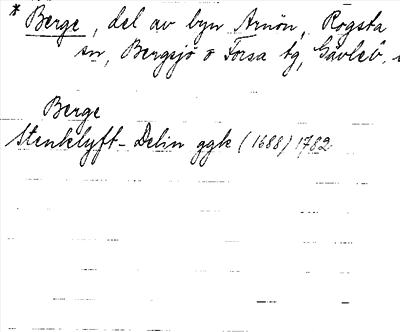 * Berge, del av byn Arnön, Rogsta
sn, Bergsjö o Forsa tg, Gävleb.
Berge
Stenklyft - Delin ggk (1688) 1782